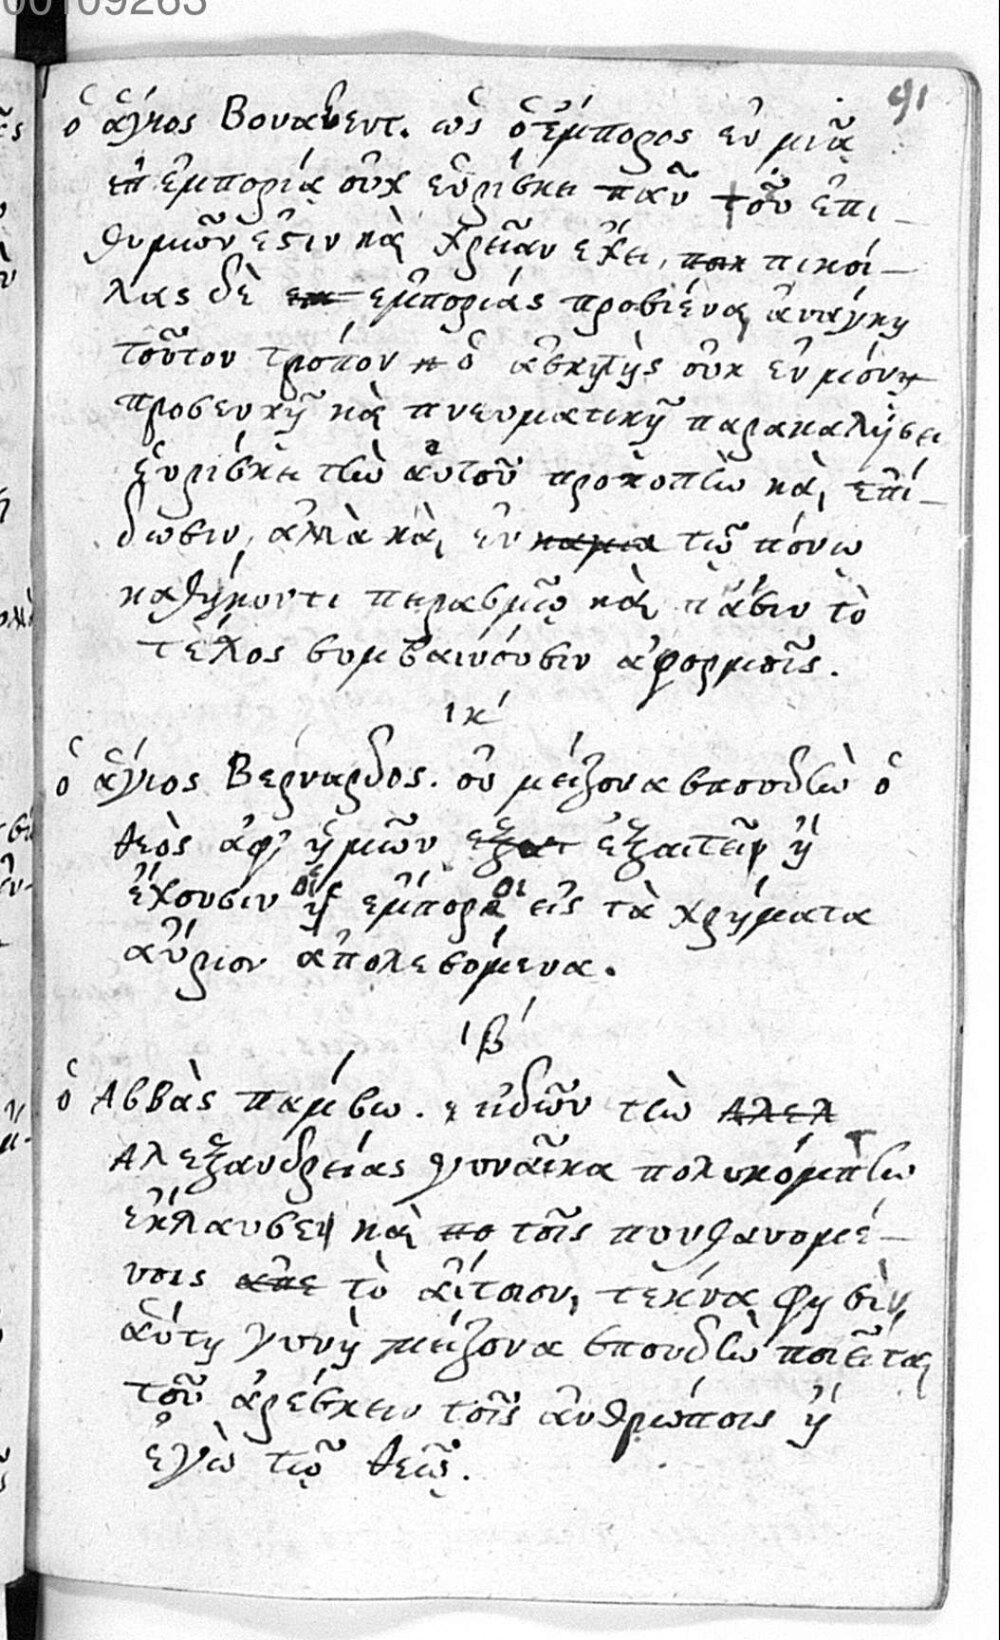 00109263
91
ὁ ἅγιος Βοναβεντ. ὡς ὁ ἔμπορος ἐν μιᾷ
ἐμπορίᾳ οὐχ εὑρίσκει πᾶν τοῦ ἐπι-
θυμιῶν ἐστιν καὶ χρείαν ἔχει, ποικοί-
λας δὲ ἐμπορίας προβιέναι ἀνάγκη
τοῦτον τρόπον ὁ ἀσκητὴς οὐκ ἐν μόνῃ
προσευχῇ καὶ πνευματικῇ παρακαλήσει
εὑρίσκει τὴν αὐτοῦ προκοπὴν καὶ ἐπί-
δωσιν, ἀλλὰ καὶ ἐν τῷ πόνῳ
καθήκοντι πειρασμῷ καὶ πᾶσιν τὸ
τέλος συμβαινούσιν ἀφορμοῖς.
ικ
ὁ ἅγιος Βερναρδος. οὐ μείζονα σπουδὴν ὁ
θεὸς ἀφ' ἡμῶν ἐξαιτεῖ ἢ
ἔχουσιν οἱ ἔμποροι εἰς τὰ χρήματα
αὔριον ἀπολεσόμενα.
ιβ
ὁ Αββὰς παμβω. εἰδῶν τὴν
Αλεξανδρείας γυναῖκα πολυκόμπτην
ἔκλαυσεν καὶ τοῖς πυνθανομέ-
νοις τὸ αἴτοιον, τεκνα φησὶν,
αὕτη γυνὴ μείζονα σπουδὴν ποιεῖται
τοῦ ἀρέσκειν τοῖς ἀνθρώποις ἢ
ἐγὼ τῷ θεῷ.